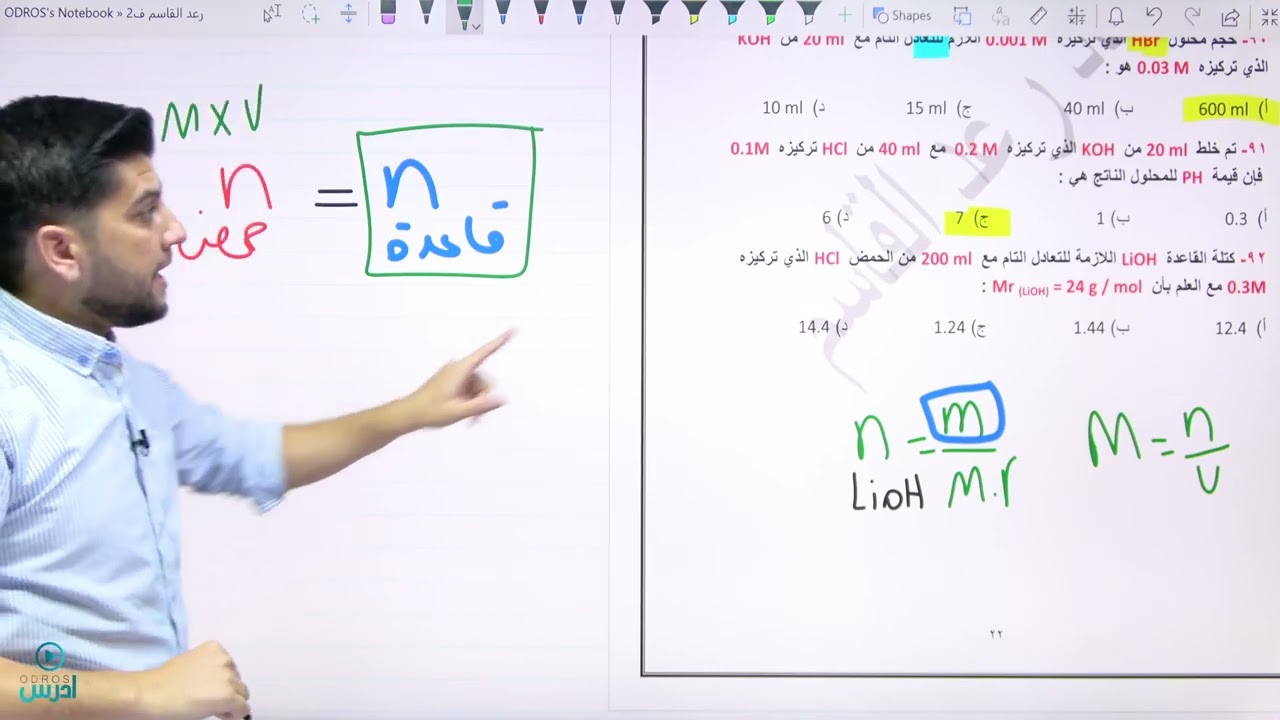 ODROS's Notebook » رعد القاسم ف2
Shapes
M X V
n = n
حمض قاعدة
٦٠- حجم محلول HBr الذي تركيزه 0.001 M اللازم للتعادل التام مع 20 ml من KOH
الذي تركيزه 0.03 M هو :
أ) 600 ml ب) 40 ml ج) 15 ml د) 10 ml
٩١- تم خلط 20 ml من KOH الذي تركيزه 0.2 M مع 40 ml من HCl تركيزه 0.1M
فإن قيمة PH للمحلول الناتج هي :
أ) 0.3 ب) 1 ج) 7 د) 6
٩٢- كتلة القاعدة LiOH اللازمة للتعادل التام مع 200 ml من الحمض HCl الذي تركيزه
0.3M مع العلم بأن Mr (LiOH) = 24 g / mol :
أ) 12.4 ب) 1.44 ج) 1.24 د) 14.4
رعد القاسم
n = m / M.r
LiOH
M = n / v
٢٢
ODROS
ادرس